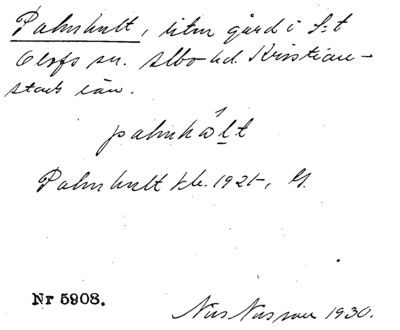 Palmhult, liten gård i S:t
Olofs sn. Albo hd. Kristian-
stads län.
palmhålt
Palmhult kb. 1925, G.
Nr 5908.
Nils Nilsson 1930.